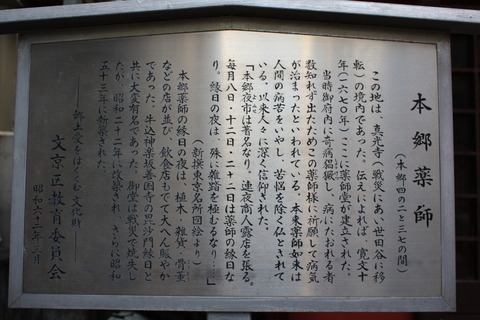 本郷薬師
(本郷四の二と三七の間)
この地は、真光寺(戦災にあい世田谷に移
転)の境内であった。伝えによれば、寛文十
年(一六七〇年)ここに薬師堂が建立された。
当時御府内に奇病猖獗し、病にたおれる者
数知れず出たためこの薬師様に祈願して病気
が治まったといわれている。本来薬師如来は
人間の病苦をいやし、苦悩を除く仏とされて
いる。以来人々に深く信仰された。
「本郷夜市は著名なり、連夜商人露店を張る。
毎月八日・十二日・二十二日は薬師の縁日な
り。縁日の夜は、殊に雑踏を極むるなり…」
(新撰東京名所図絵より)
本郷薬師の縁日の夜は、植木・雑貨・骨董
などの店が並び、飲食店もでて大へん賑やか
であった。牛込神楽坂善国寺の毘沙門縁日と
共に大変有名であった。御堂は戦災で焼失し
たが、昭和二十二年に改築され、さらに昭和
五十三年に新築された。
―郷土愛をはぐくむ文化財―
文京区教育委員会
昭和六十二年三月